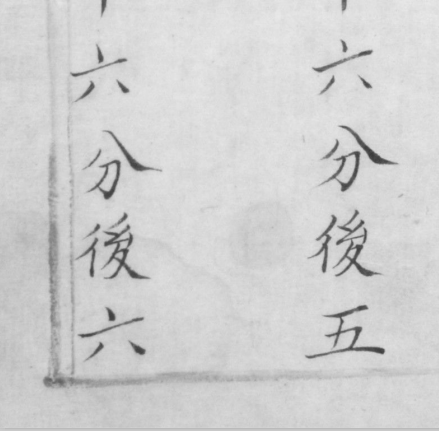 六分後五
六分後六